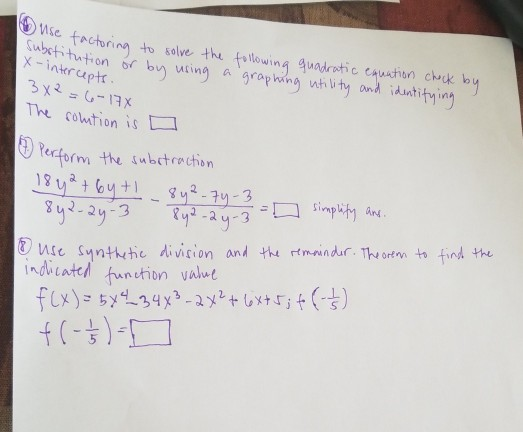 ⑥ use factoring to solve the following quadratic equation check by
substitution or by using a graphing utility and identifying
x-intercepts.
3x² = 6-17x
The solution is □
⑦ Perform the subtraction
(18y² + 6y + 1)/(8y² - 2y - 3) - (8y² - 7y - 3)/(8y² - 2y - 3) = □ simplify ans.
⑧ use synthetic division and the remainder. Theorem to find the
indicated function value
f(x) = 5x⁴ - 34x³ - 2x² + 6x + 5; f(-1/5)
f(-1/5) = □